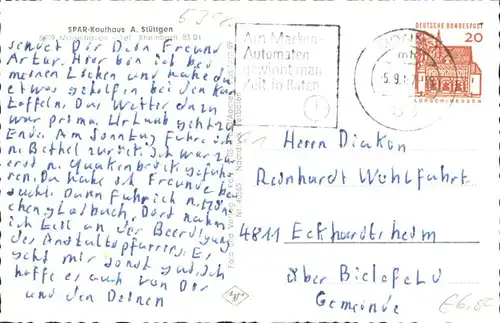 SPAR-Kaufhaus A. Stüttgen
5309 Tel. Rheinbach 83 04
sendet Dir Dein Freund
Artur. Hier bin ich bei
meinen und habe da
etwas geholfen bei den Kar
toffeln. Das Wetter dazu
war prima. Urlaub geht zu
Ende. Am Sonntag fahre ich
n. Bethel zurück. Ich war zu
erst n. Quakenbrück gefah
ren. Da habe ich Freunde be
sucht. Dann fuhr ich n. Mön
chengladbach. Dort nahm
ich teil an der Beerdigung
des Anstaltspfarrers. Es
geht mir sonst gut. Ich
hoffe es auch von Dir
und den Deinen
Am Marken-
Automaten
gewinnt man
Zeit in Raten
BONN
5.9.
DEUTSCHE BUNDESPOST
20
LORSCH/HESSEN
Herrn Diakon
Reinhardt Wohlfahrt
4811 Eckhardtsheim
über Bielefeld
Gemeinde
€6,80